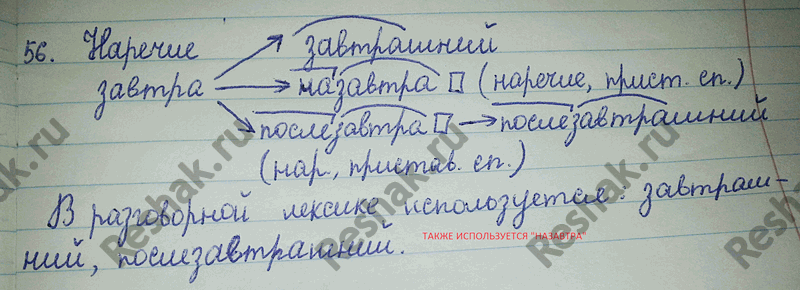 56. Наречие завтрашний
завтра назавтра (наречие, прист. сп.)
послезавтра послезавтрашний
(нар., пристав. сп.)
В разговорной лексике используется: завтраш-
ний, послезавтрашний.
ТАКЖЕ ИСПОЛЬЗУЕТСЯ "НАЗАВТРА"
Reshak.ru
Reshak.ru
Reshak.ru
Reshak.ru